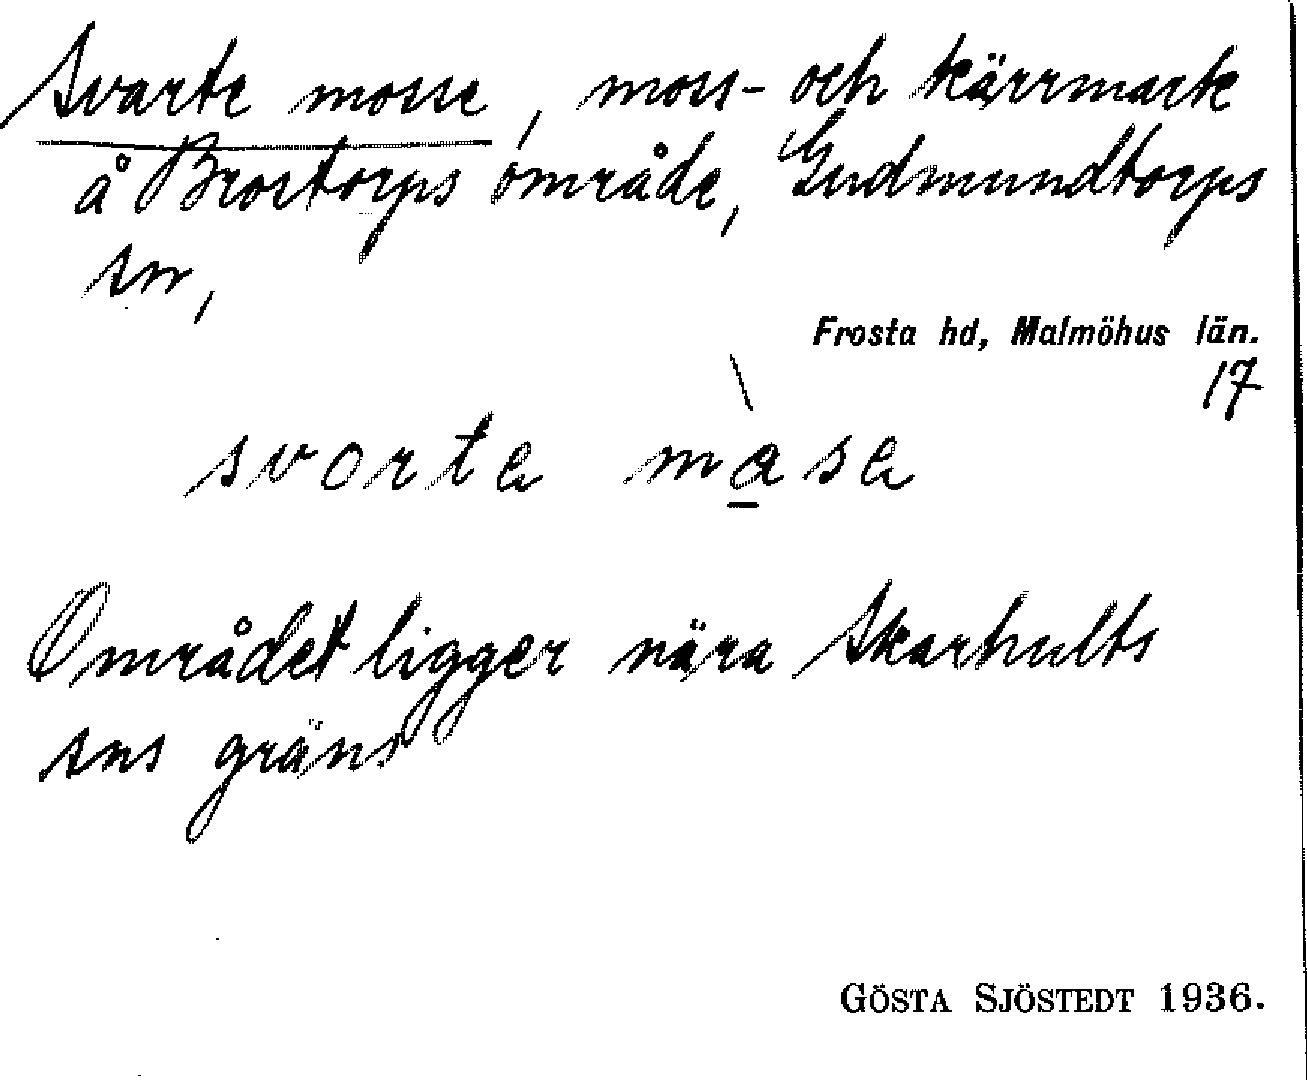 Svarte mosse, moss- och kärrmark
å Brostorps område, Gudmundtorps
sn,
Frosta hd, Malmöhus län.
17
svorte mase
Området ligger nära Skarhults
sns gräns
GÖSTA SJÖSTEDT 1936.